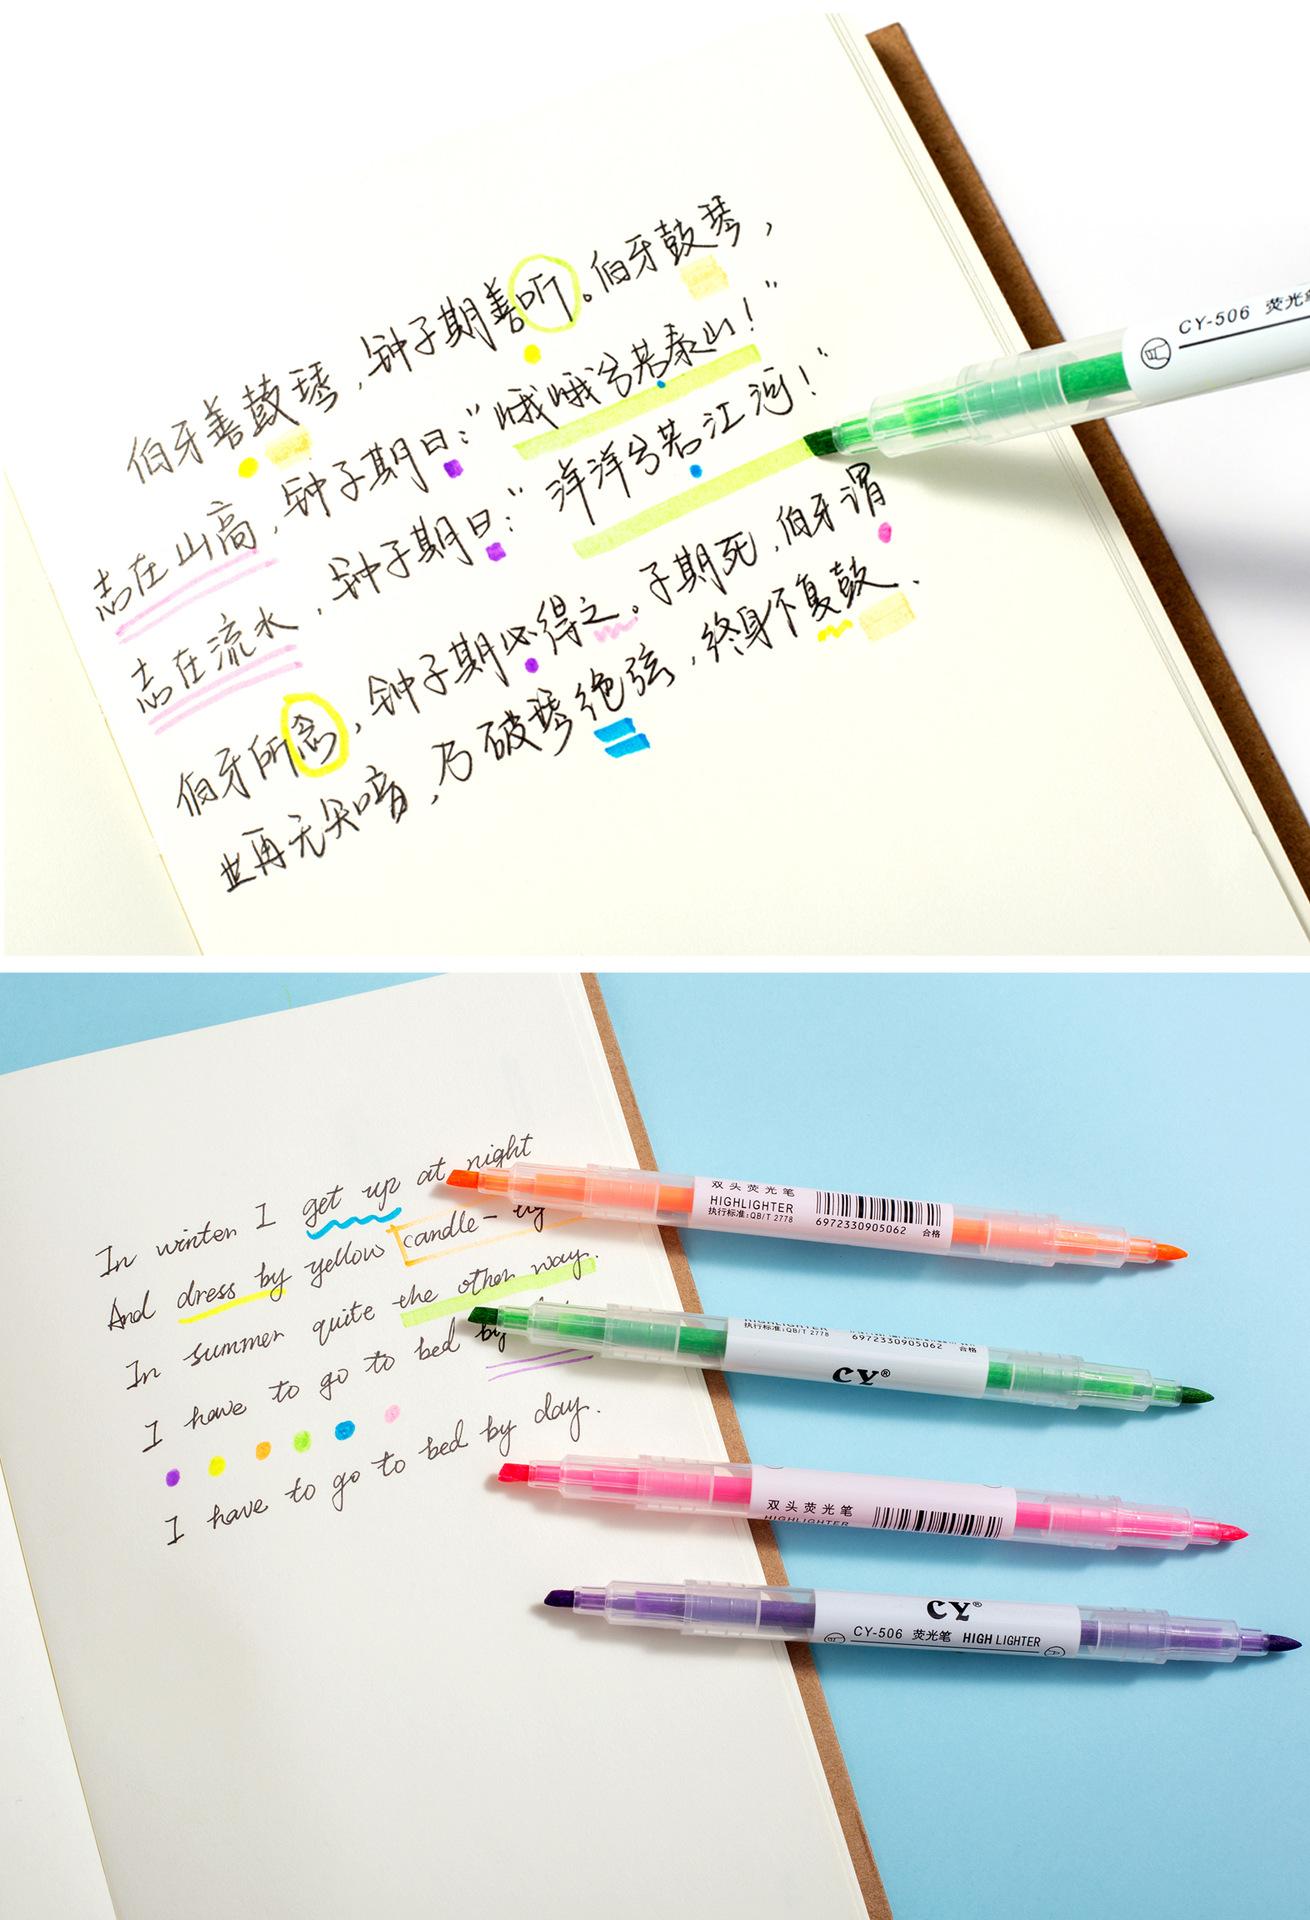 伯牙善鼓琴，钟子期善听。伯牙鼓琴，
志在山高，钟子期曰：“哦哦兮若泰山！”
志在流水，钟子期曰：“洋洋兮若江河！”
伯牙所念，钟子期必得之。子期死，伯牙谓
世再无知音，乃破琴绝弦，终身不复鼓、
CY-506 荧光
In winter I get up at night
And dress by yellow candle-
In summer quite the other way.
I have to go to bed by
I have to go to bed by day.
双头荧光笔
HIGHLIGHTER
执行标准:QB/T 2778
6972330905062 合格
HIGHLIGHTER
执行标准:QB/T 2778
6972330905062 合格
CY®
双头荧光笔
HIGHLIGHTER
CY®
CY-506 荧光笔 HIGHLIGHTER